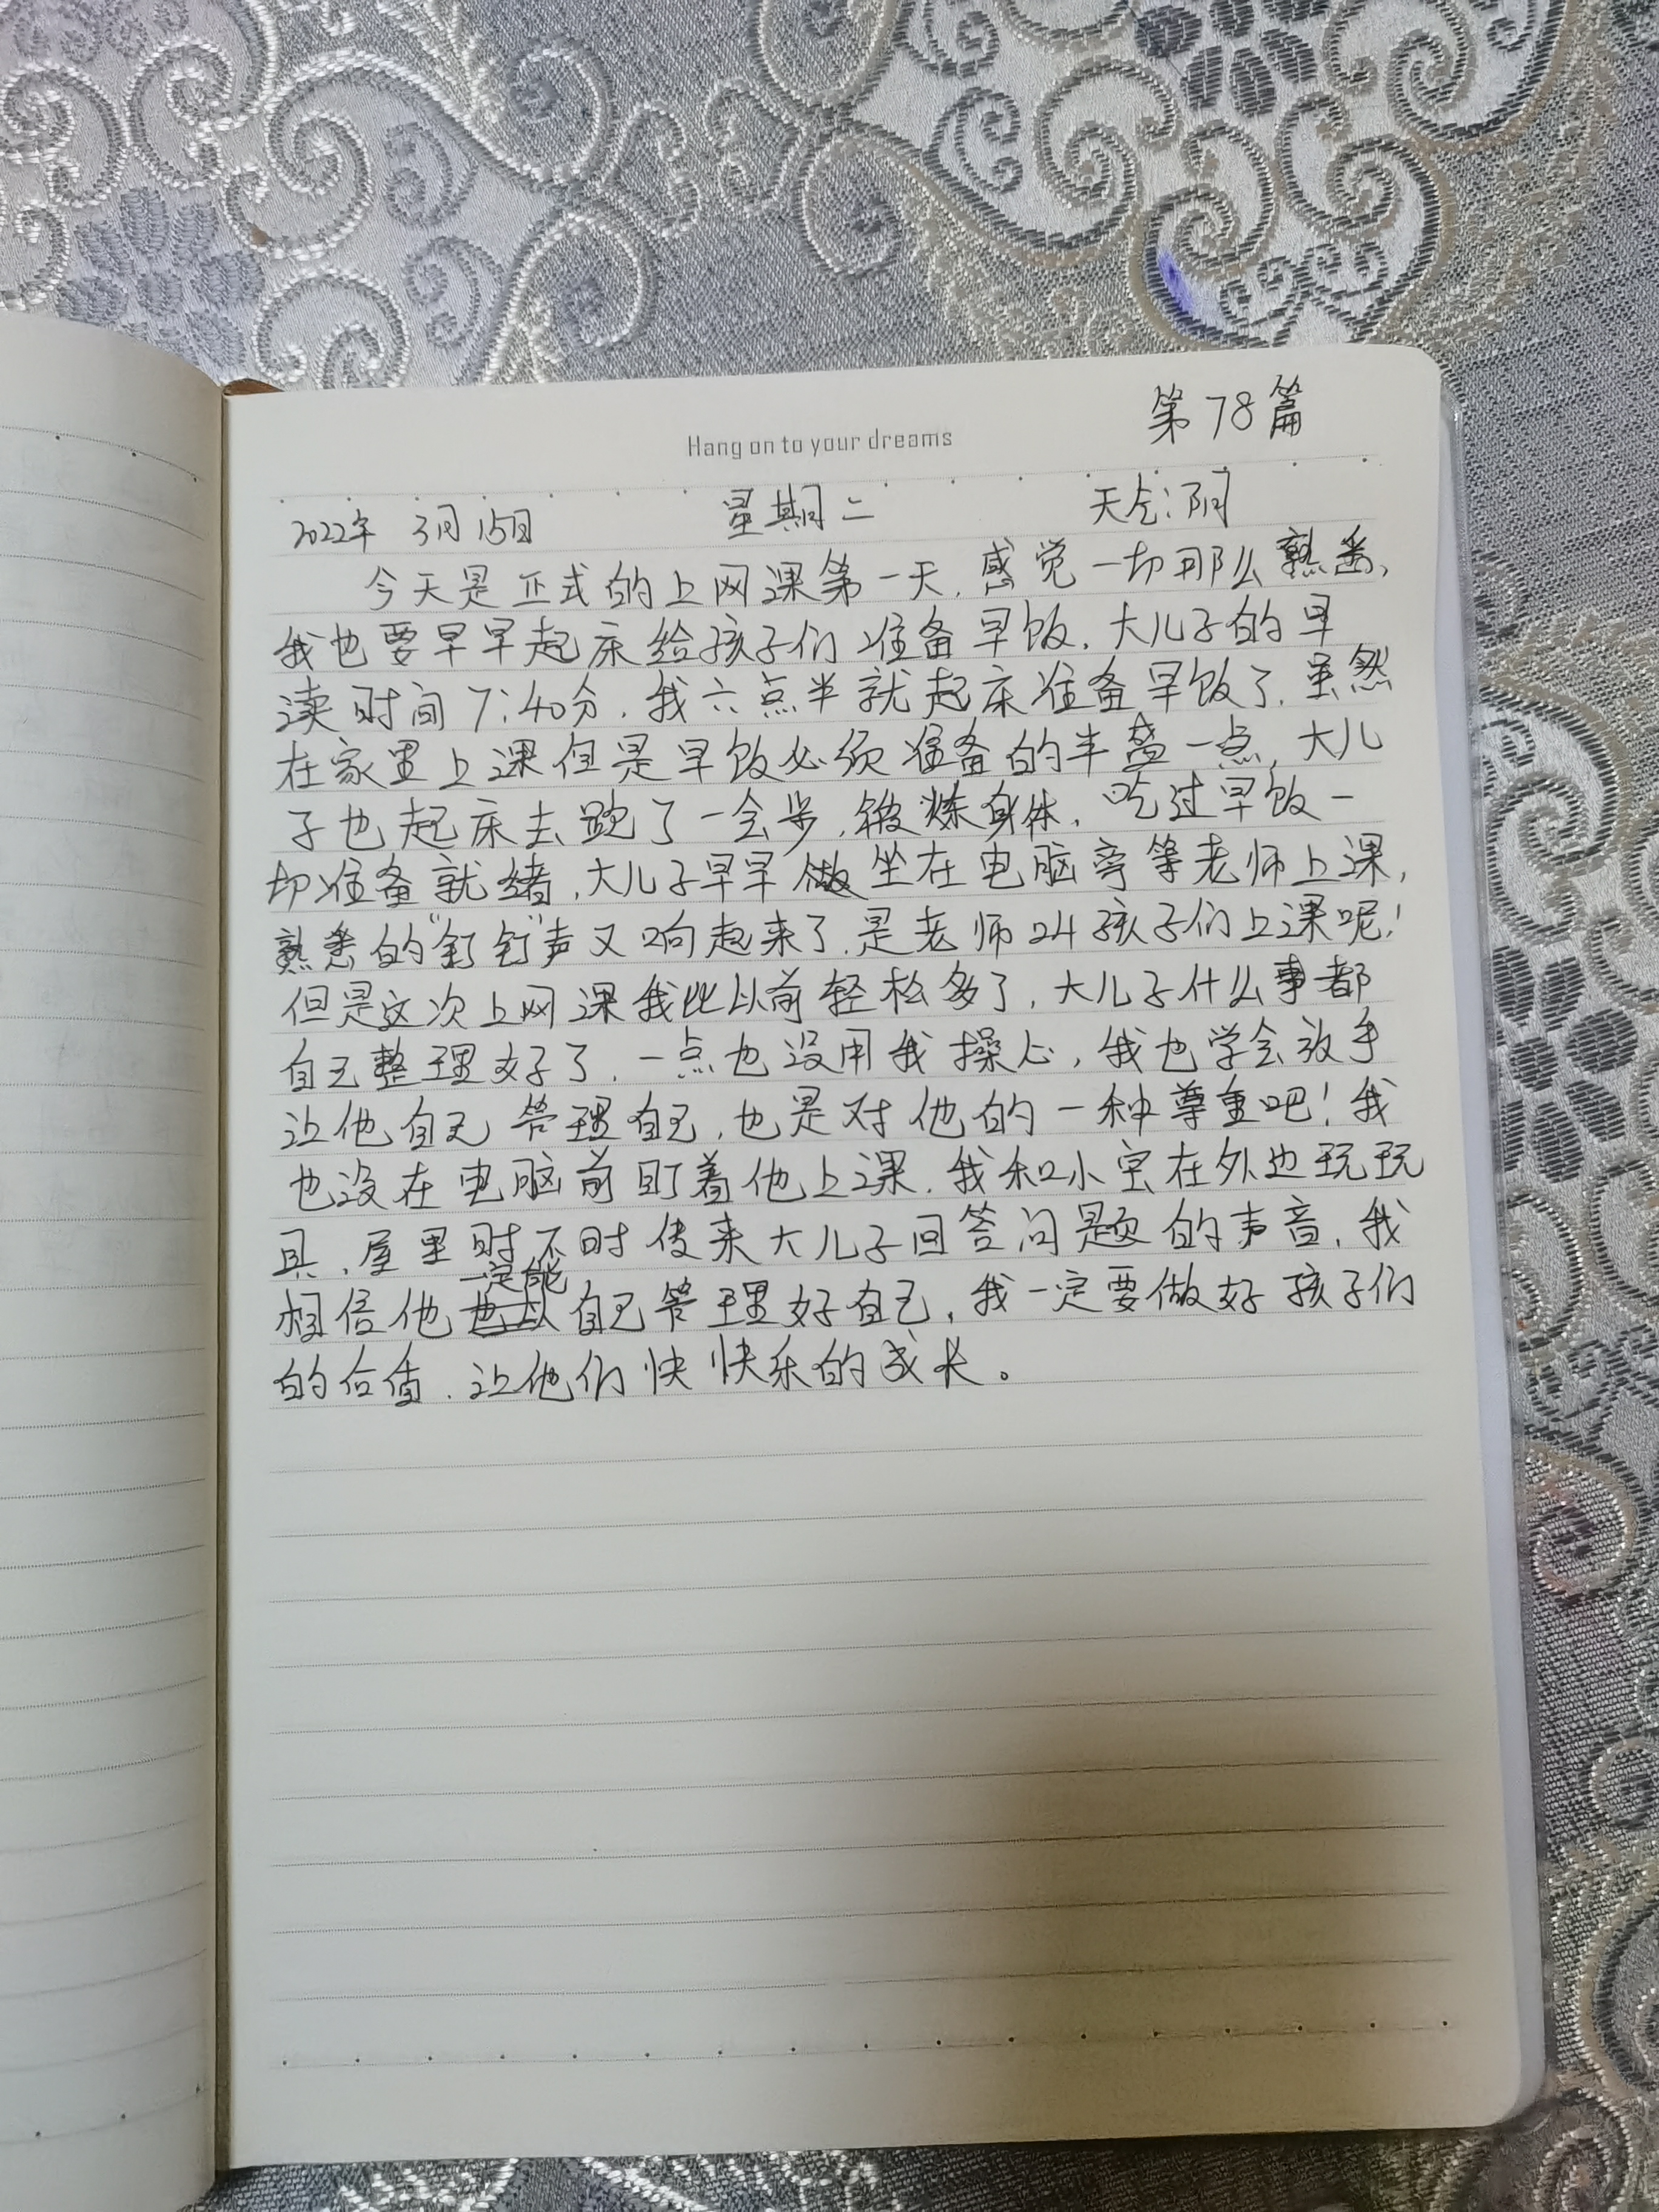 第78篇
Hang on to your dreams
2022年 3月15日 星期二 天气:阴
今天是正式的上网课第一天,感觉一切那么熟悉,
我也要早早起床给孩子们准备早饭,大儿子的早
读时间7:40分,我六点半就起床准备早饭了,虽然
在家里上课但是早饭必须准备的丰盛一点,大儿
子也起床去跑了一会步,锻炼身体,吃过早饭一
切准备就绪,大儿子早早做坐在电脑旁等老师上课,
熟悉的"钉钉"声又响起来了,是老师叫孩子们上课呢!
但是这次上网课我比以前轻松多了,大儿子什么事都
自己整理好了,一点也没用我操心,我也学会放手
让他自己管理自己,也是对他的一种尊重吧!我
也没在电脑前盯着他上课,我和小宝在外边玩玩
具,屋里时不时传来大儿子回答问题的声音,我
相信他一定能自己管理好自己,我一定要做好孩子们
的后盾,让他们快快乐的成长。